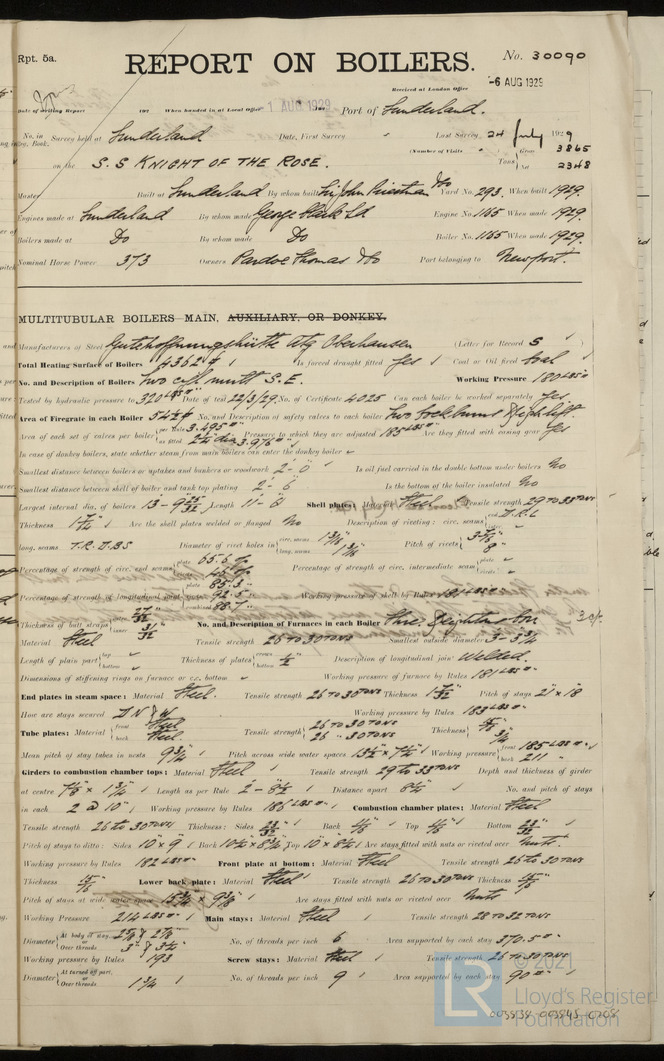 Rpt. 5a.
REPORT ON BOILERS.
No. 30090
Received at London Office
-6 AUG 1929
Date of writing Report 192 When handed in at Local Office 1 AUG 1929 Port of Sunderland.
No. in Survey held at Sunderland Date, First Survey Last Survey, 24 July 1929
Reg. Book.
(Number of Visits Gross 3865
on the S.S KNIGHT OF THE ROSE. Tons Net 2348
Master Built at Sunderland By whom built Sir John Priestman & Co Yard No. 293. When built 1929.
Engines made at Sunderland By whom made George Clark Ld Engine No. 1165 When made 1929.
Boilers made at Do By whom made Do Boiler No. 1165 When made 1929.
Nominal Horse Power 373 Owners Pardoe Thomas & Co Port belonging to Newport.
MULTITUBULAR BOILERS MAIN, AUXILIARY, OR DONKEY.
Manufacturers of Steel Gutehoffnungshütte Atg Oberhausen (Letter for Record S )
Total Heating Surface of Boilers 4362 Is forced draught fitted Yes Coal or Oil fired Coal
No. and Description of Boilers Two cyl mult S.E. Working Pressure 180 LBS
Tested by hydraulic pressure to 320 LBS Date of test 22/3/29. No. of Certificate 4025 Can each boiler be worked separately Yes
Area of Firegrate in each Boiler No. and Description of safety valves to each boiler Two Cockburns High lift
Area of each set of valves per boiler per Rule 3.495 as fitted 3.976 Pressure to which they are adjusted 185 LBS Are they fitted with easing gear Yes
In case of donkey boilers, state whether steam from main boilers can enter the donkey boiler
Smallest distance between boilers or uptakes and bunkers or woodwork 2'-0" Is oil fuel carried in the double bottom under boilers No
Smallest distance between shell of boiler and tank top plating 2'-6" Is the bottom of the boiler insulated No
Largest internal dia. of boilers 13-9 25/32 Length 11-6 Shell plates: Material Steel Tensile strength 29 TO 33 TONS
Thickness Are the shell plates welded or flanged No Description of riveting: circ. seams end D.R.L
long. seams T.R.D.B.S Diameter of rivet holes in circ. seams long. seams Pitch of rivets
Percentage of strength of circ. end seams plate 65.6 rivets Percentage of strength of circ. intermediate seam
Percentage of strength of longitudinal joint plate 85.3 rivets 92.5 combined 88.7 Working pressure of shell by Rules 181 LBS
Thickness of butt straps outer 27/32 inner 31/32 No. and Description of Furnaces in each Boiler Three Deighton Cor
Material Steel Tensile strength 26 TO 30 TONS Smallest outside diameter 3-3 3/4
Length of plain part top bottom Thickness of plates crown bottom Description of longitudinal joint Welded.
Dimensions of stiffening rings on furnace or c.c. bottom Working pressure of furnace by Rules 181 LBS
End plates in steam space: Material Steel. Tensile strength 26 TO 30 TONS Thickness Pitch of stays 21 x 18
How are stays secured D N & W Working pressure by Rules 183 LBS
Tube plates: Material front Steel back Steel Tensile strength 26 TO 30 TONS 26 " 30 TONS Thickness
Mean pitch of stay tubes in nests 9 3/4 Pitch across wide water spaces 13 1/2 x 7 3/4 Working pressure front 185 LBS back 211 "
Girders to combustion chamber tops: Material Steel Tensile strength 29 to 33 TONS Depth and thickness of girder
at centre Length as per Rule 2'-8 Distance apart No. and pitch of stays
in each 2 @ 10" Working pressure by Rules Combustion chamber plates: Material Steel
Tensile strength 26 to 30 TONS Thickness: Sides 23/32 Back Top Bottom 23/32
Pitch of stays to ditto: Sides 10" x 9" Back Top Are stays fitted with nuts or riveted over Nuts.
Working pressure by Rules 182 LBS Front plate at bottom: Material Steel Tensile strength 26 TO 30 TONS
Thickness Lower back plate: Material Steel Tensile strength 26 TO 30 TONS Thickness
Pitch of stays at wide water space Are stays fitted with nuts or riveted over Nuts
Working Pressure 214 LBS Main stays: Material Steel Tensile strength 28 TO 32 TONS
Diameter At body of stay, or Over threads No. of threads per inch 6 Area supported by each stay 370.5
Working pressure by Rules 193 Screw stays: Material Steel Tensile strength 26 TO 30 TONS
Diameter At turned off part, or Over threads 1 3/4 No. of threads per inch 9 Area supported by each stay 90
© 2021
LR Lloyd's Register
Foundation
003538-003545-0208